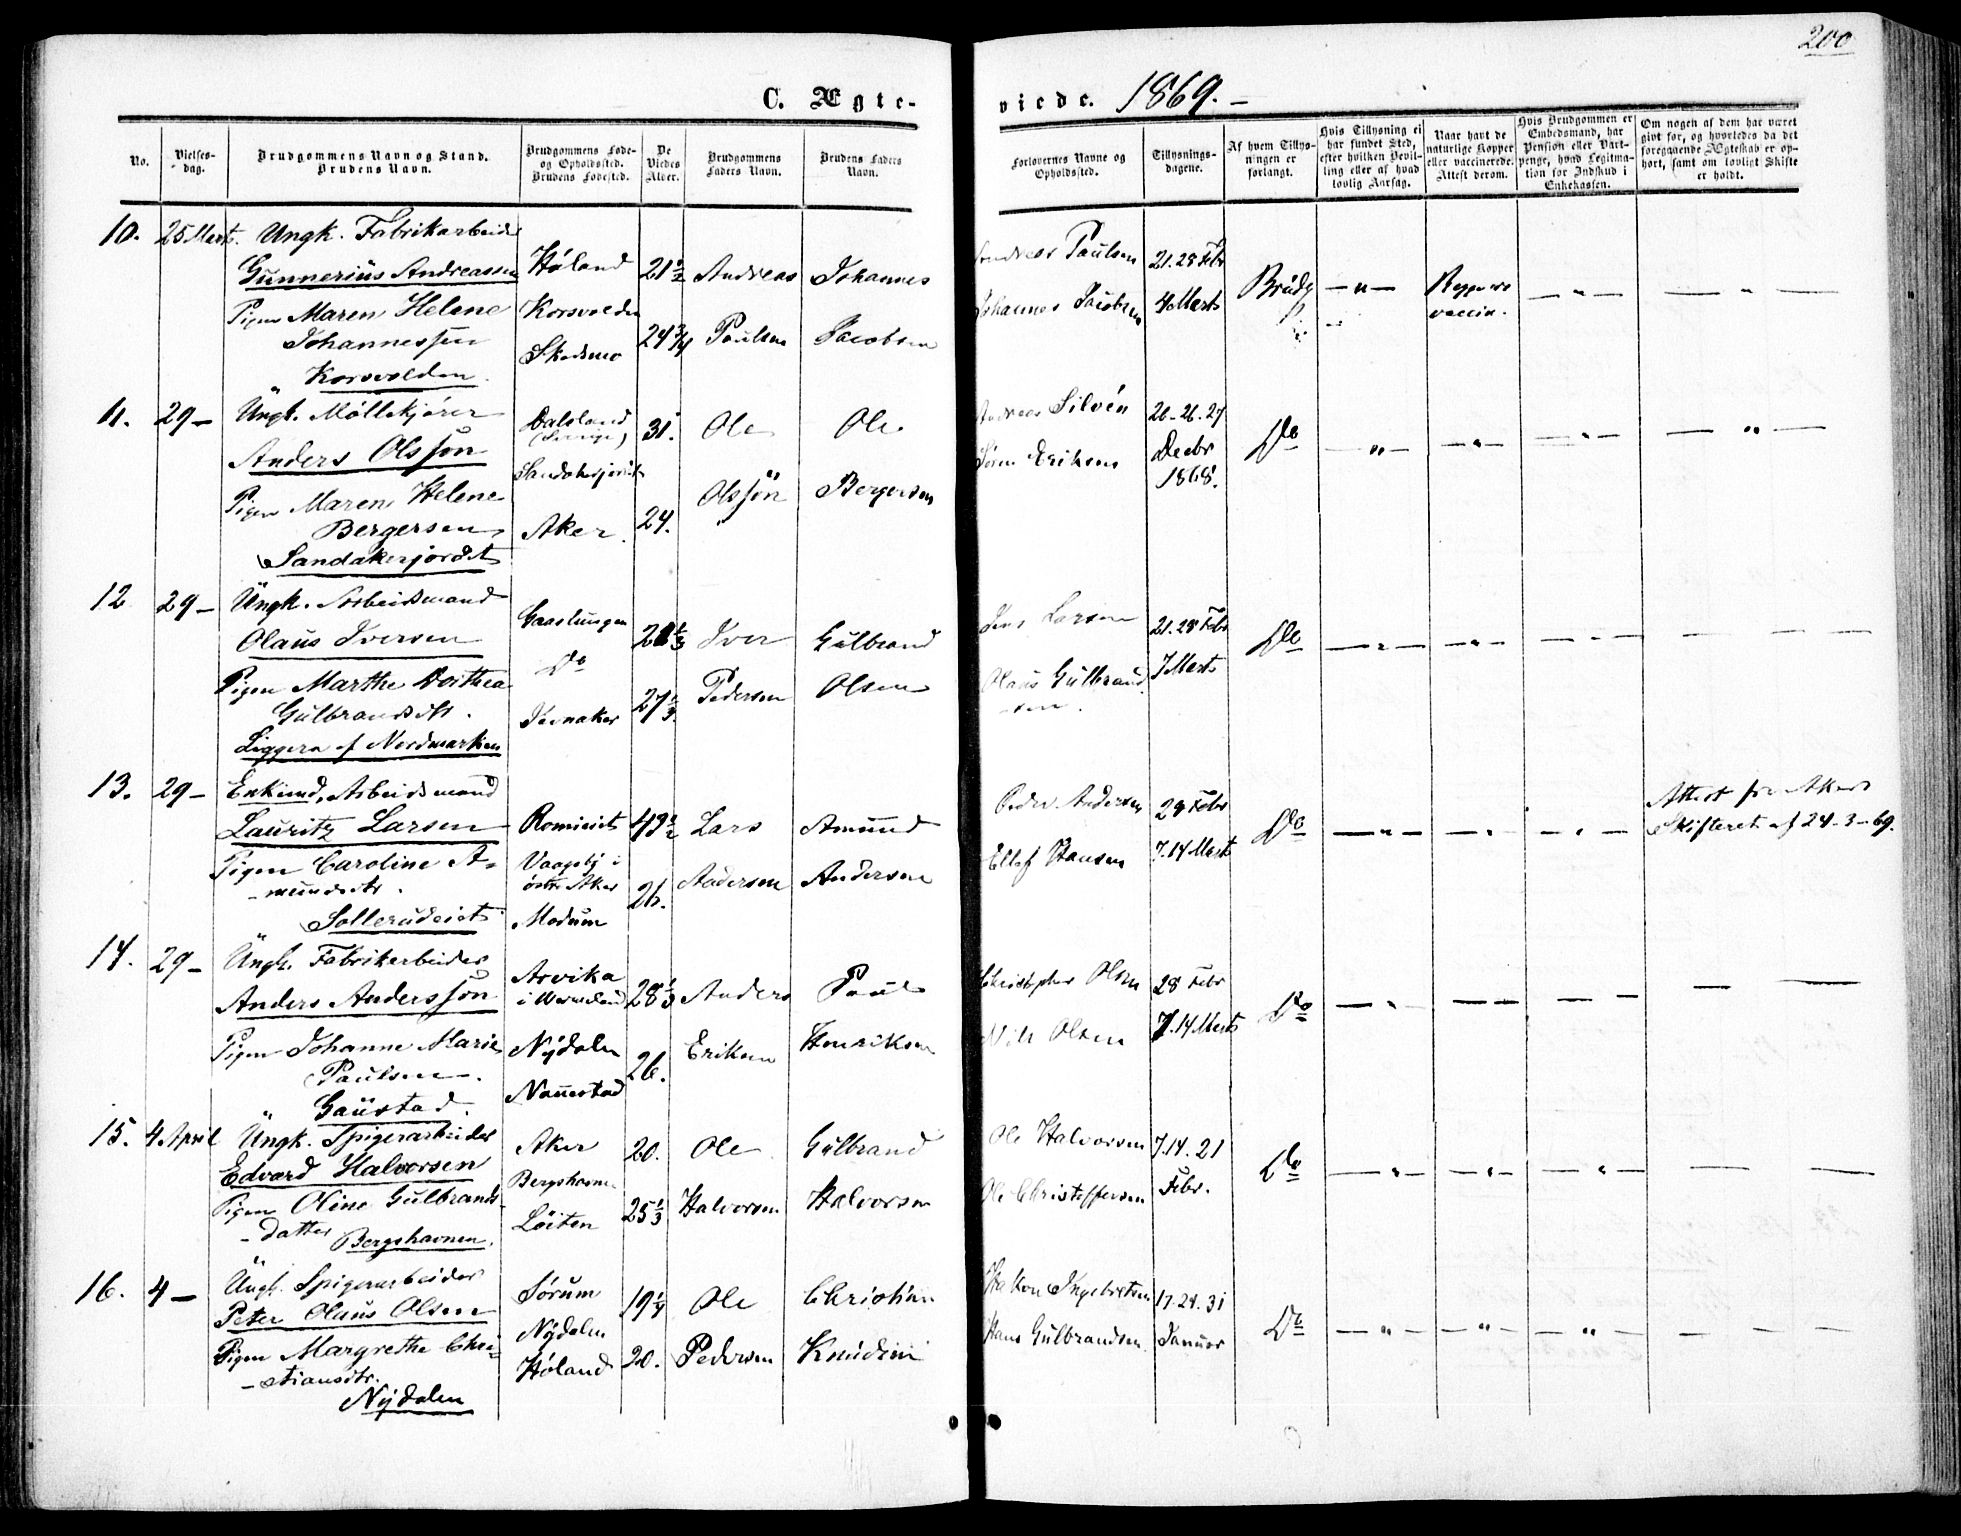 200
C. Ægte-
viede. 1869. –
No.
Vielses-
dag.
Brudgommens Navn og Stand.
Brudens Navn.
Brudgommens Føde-
og Opholdssted.
Brudens Fødested.
De
Viedes
Alder.
Brudgommens
Faders Navn.
Brudens Faders
Navn.
Forlovernes Navne og
Opholdssted.
Tillysnings-
dagene.
Af hvem Tillys-
ningen er
forlangt.
Hvis Tillysning ei
har fundet Sted,
efter hvilken Bevil-
ling eller af hvad
lovlig Aarsag.
Naar havt de
naturlige Kopper
eller vaccinerede.
Attest derom.
Hvis Brudgommen er
Embedsmand, har
Pension eller Vart-
penge, hvad Legitima-
tion for Indskud i
Enkekassen.
Om nogen af dem har været
givt før, og hvorledes da det
foregaaende Ægteskab er op-
hørt, samt om lovligt Skifte
er holdt.
10. 25 Marts. Ungk. Fabrikarbeider
Gunnerius Andreassen
Pigen Maren Helene
Johannessen
Korsvolden
Høland
Korsvolden
Skedsmo
21 1/2
24 3/4
Andreas
Paulsen
Johannes
Jacobsen
Andreas Paulsen
Johannes Jacobsen
21. 28 Febr
4 Marts
Brudg
– " –
vaccin.
– " –
– " –
11. 29 – Ungk. Møllekjører
Anders Olsson
Pigen Maren Helene
Bergersen
Sandakerjordet
Dalsland
(Sverige)
Sandakerjordet
Aker.
31.
24.
Ole
Olsson
Ole
Bergersen
Andreas Silvén
Søren Eriksen
20-26-27
Decbr
1868.
Do
– " –
– " –
– " –
– " –
12 29 – Ungk. Arbeidsmand
Olaus Iversen
Pigen Marthe Dorthea
Gulbrandsdtr.
Liggern af Nordmarken
Gaaslungen
Do
Jevnaker
27 1/3
Iver
Pedersen
Gulbrand
Olsen
Jens Larsen
Olaus Gulbrand-
sen.
21. 28 Febr
7 Marts
Do
– " –
– " –
– " –
13. 29 – Enkemd, Arbeidsmand
Lauritz Larsen
Pigen Caroline A-
-mundsdtr.
Sollerudeiet
Vaagebj i
østre Aker
Modum
43 1/2
26.
Lars
Andersen
Amund
Andersen
Peder Andersen
Ellef Hansen
28 Febr
7. 14 Marts
Do
– " –
– " –
– " –
Attest fra Akers
Skifteret af 24-3-69.
14. 29 – Ungk. Fabrikarbeider
Anders Andersson
Pigen Johanne Marie
Paulsen.
Gaustad.
Arvika
i Wermeland
Nydalen
Nannestad
28 1/3
26.
Anders
Eriksen
Paul
Henriksen
Christopher Olsen
Nils Olsen
28 Febr
7. 14 Marts
Do
– " –
15. 4 April Ungk. Spigerarbeider
Edvard Halvorsen
Pigen Oline Gulbrands-
-datter
Bergshavnen.
Aker
Bergshavnen
Løiten
20.
25 1/3
Ole
Halvorsen
Gulbrand
Halvorsen
Ole Halvorsen
Ole Christoffersen
7. 14. 21
Febr.
Do
– " –
– " –
– " –
16. 4 – Ungk. Spigerarbeider
Peter Olaus Olsen
Pigen Margrethe Chri-
-stiansdtr.
Nydalen
Sørum
Nydalen
Høland
19 1/4
20.
Ole
Pedersen
Christian
Knudsen
Hakon Ingebretsen
Hans Gulbrandsen
17. 24. 31
Januar
Do
– " –
– " –
– " –